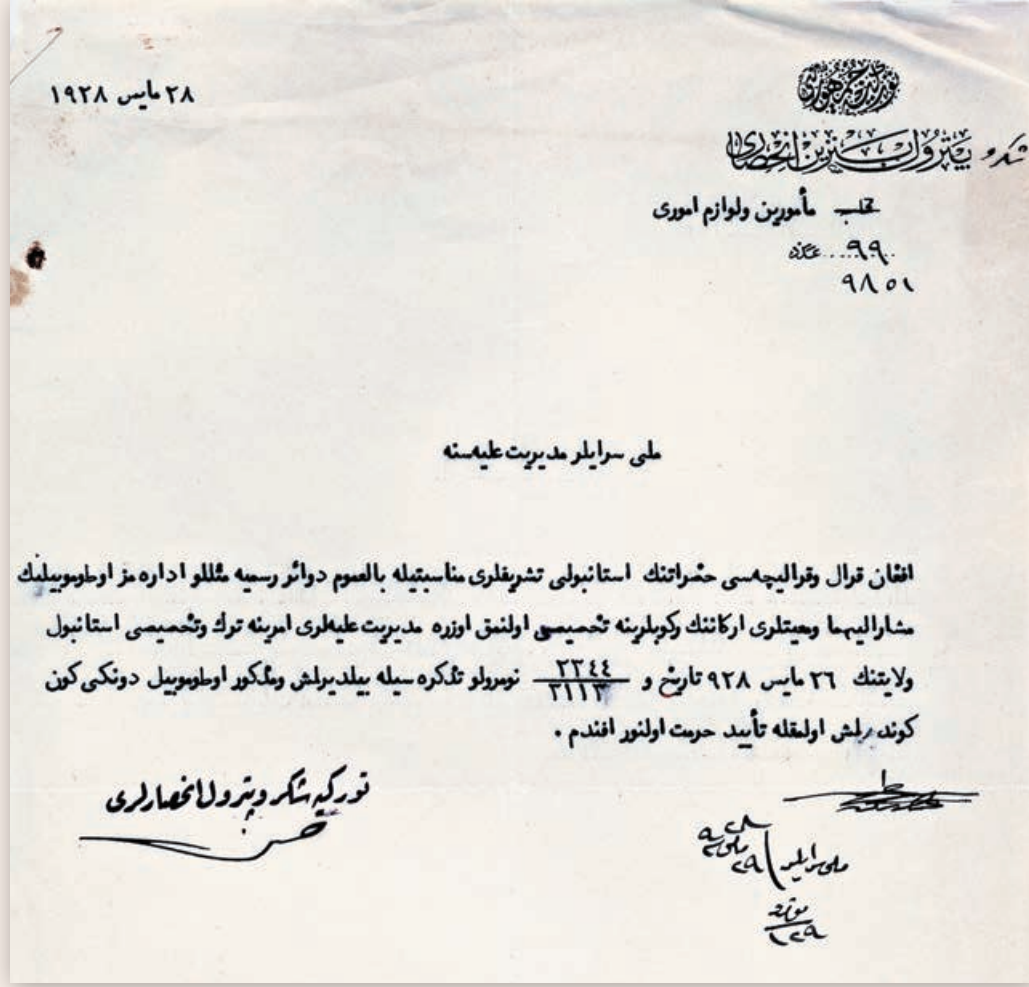 توركيه جمهوريتى
شكر و پترول بنزين انحصارى
٢٨ مايس ١٩٢٨
مأمورين ولوازم امورى
٩٩ عدد
٩٨٥١
ملى سرايلر مديريت عليه‌سنه
افغان قرال وقراليچه‌سى حضراتنك استانبولى تشريفلرى مناسبتيله بالعموم دوائر رسميه مثللو اداره مز اوطوموبيلنك
مشاراليهما ومعيتلرى اركاننك ركوبلرينه تخصيصى اولنمق اوزره مديريت عليه‌لرى امرينه ترك وتخصيصى استانبول
ولايتنك ٢٦ مايس ٩٢٨ تاريخ و ٢٢٤٤/٢١١٣ نومرولو تذكره سيله بيلديرلمش ومذكور اوطوموبيل دونكى كون
كوندرلمش اولمقله تأييد حرمت اولنور افندم .
توركيه شكر وپترول انحصارلرى
حسن
ملى سرايلر
١٢٩